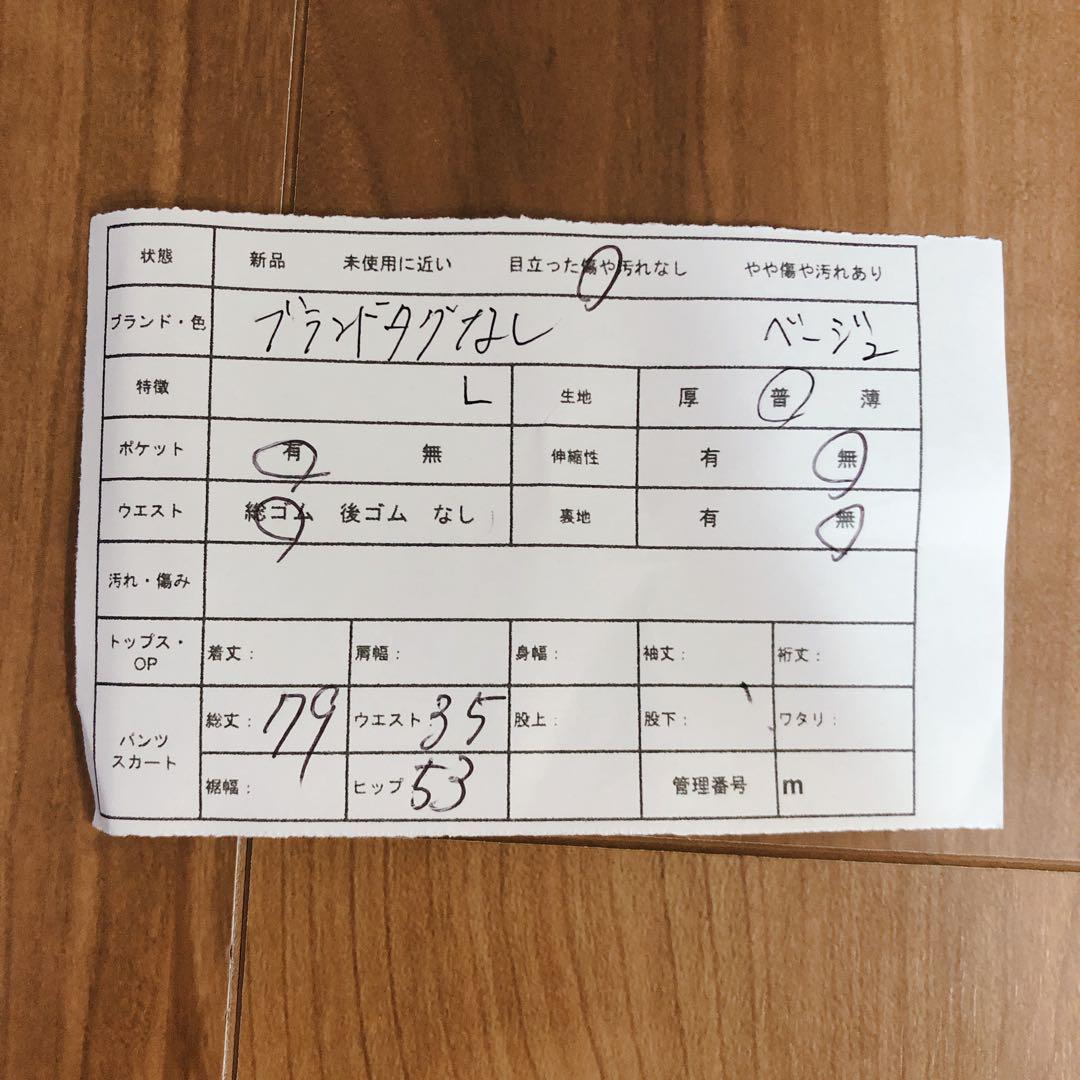 状態 新品 未使用に近い 目立った傷や汚れなし やや傷や汚れあり
ブランド・色 ブランドタグなし ベージュ
特徴 L 生地 厚 普 薄
ポケット 有 無 伸縮性 有 無
ウエスト 総ゴム 後ゴム なし 裏地 有 無
汚れ・傷み
トップス・
OP 着丈: 肩幅: 身幅: 袖丈: 裄丈:
パンツ
スカート 総丈: 79 ウエスト: 35 股上: 股下: ワタリ:
裾幅: ヒップ 53 管理番号 m